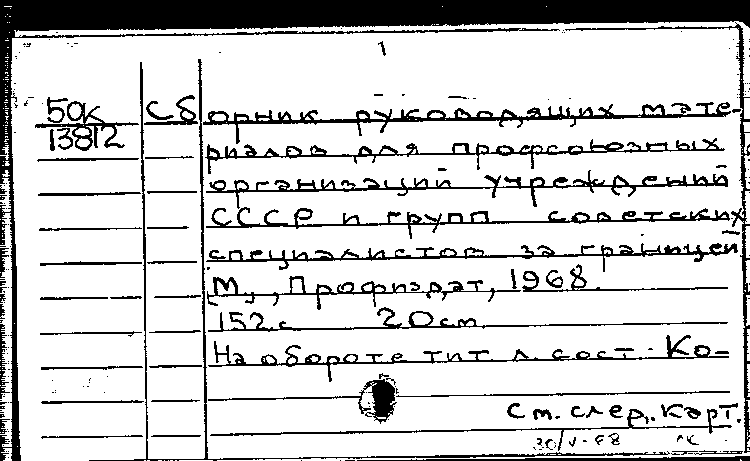 1
50к Сборник руководящих мате-
13812
риалов для профсоюзных
организаций учреждений
СССР и групп советских
специалистов за границей
М., Профиздат, 1968.
152 с. 20 см.
На обороте тит. л. сост. Ко-
См. след. карт.
30/V-68